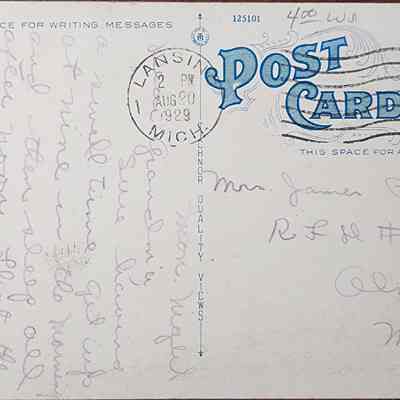 CE FOR WRITING MESSAGES
125101
4.00
LANSIN
2 PM
AUG 20
1929
MICH.
POST
CARD
THIS SPACE FOR A
QUALITY VIEWS
Mrs. James
R F D #
Mon. Night
Grandma
Sure having
a swell time get up
at nine in the morning
and then sleep all
after noon